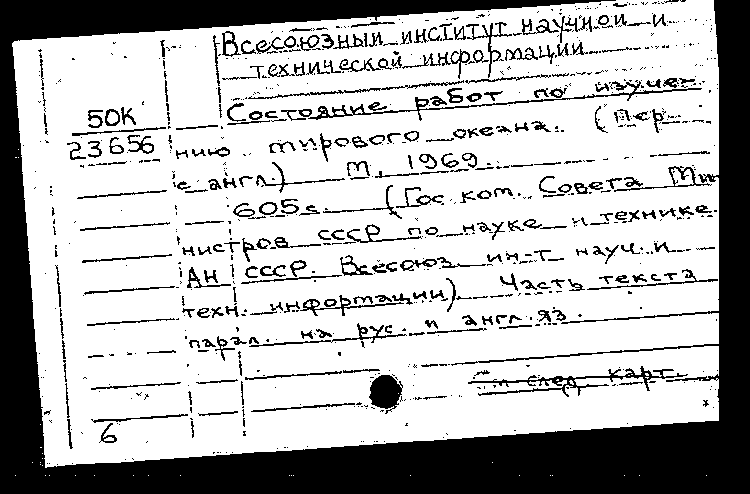 Всесоюзный институт научной и
технической информации
50К
23656
Состояние работ по изуче-
нию мирового океана. (Пер.
с англ.) М, 1969.
605с. (Гос ком. Совета Ми-
нистров СССР по науке и технике.
АН СССР. Всесоюз. ин-т науч. и
техн. информации). Часть текста
парал. на рус. и англ. яз.
См след. карт.
6